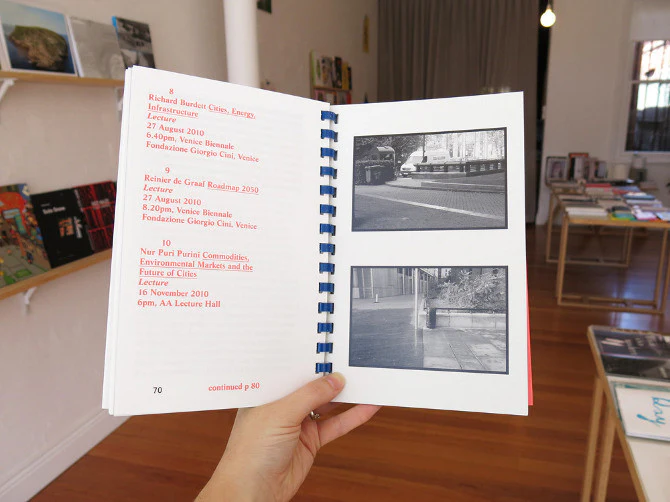 8
Richard Burdett Cities, Energy,
Infrastructure
Lecture
27 August 2010
6.40pm, Venice Biennale
Fondazione Giorgio Cini, Venice
9
Reinier de Graaf Roadmap 2050
Lecture
27 August 2010
8.20pm, Venice Biennale
Fondazione Giorgio Cini, Venice
10
Nur Puri Purini Commodities,
Environmental Markets and the
Future of Cities
Lecture
16 November 2010
6pm, AA Lecture Hall
70
continued p 80